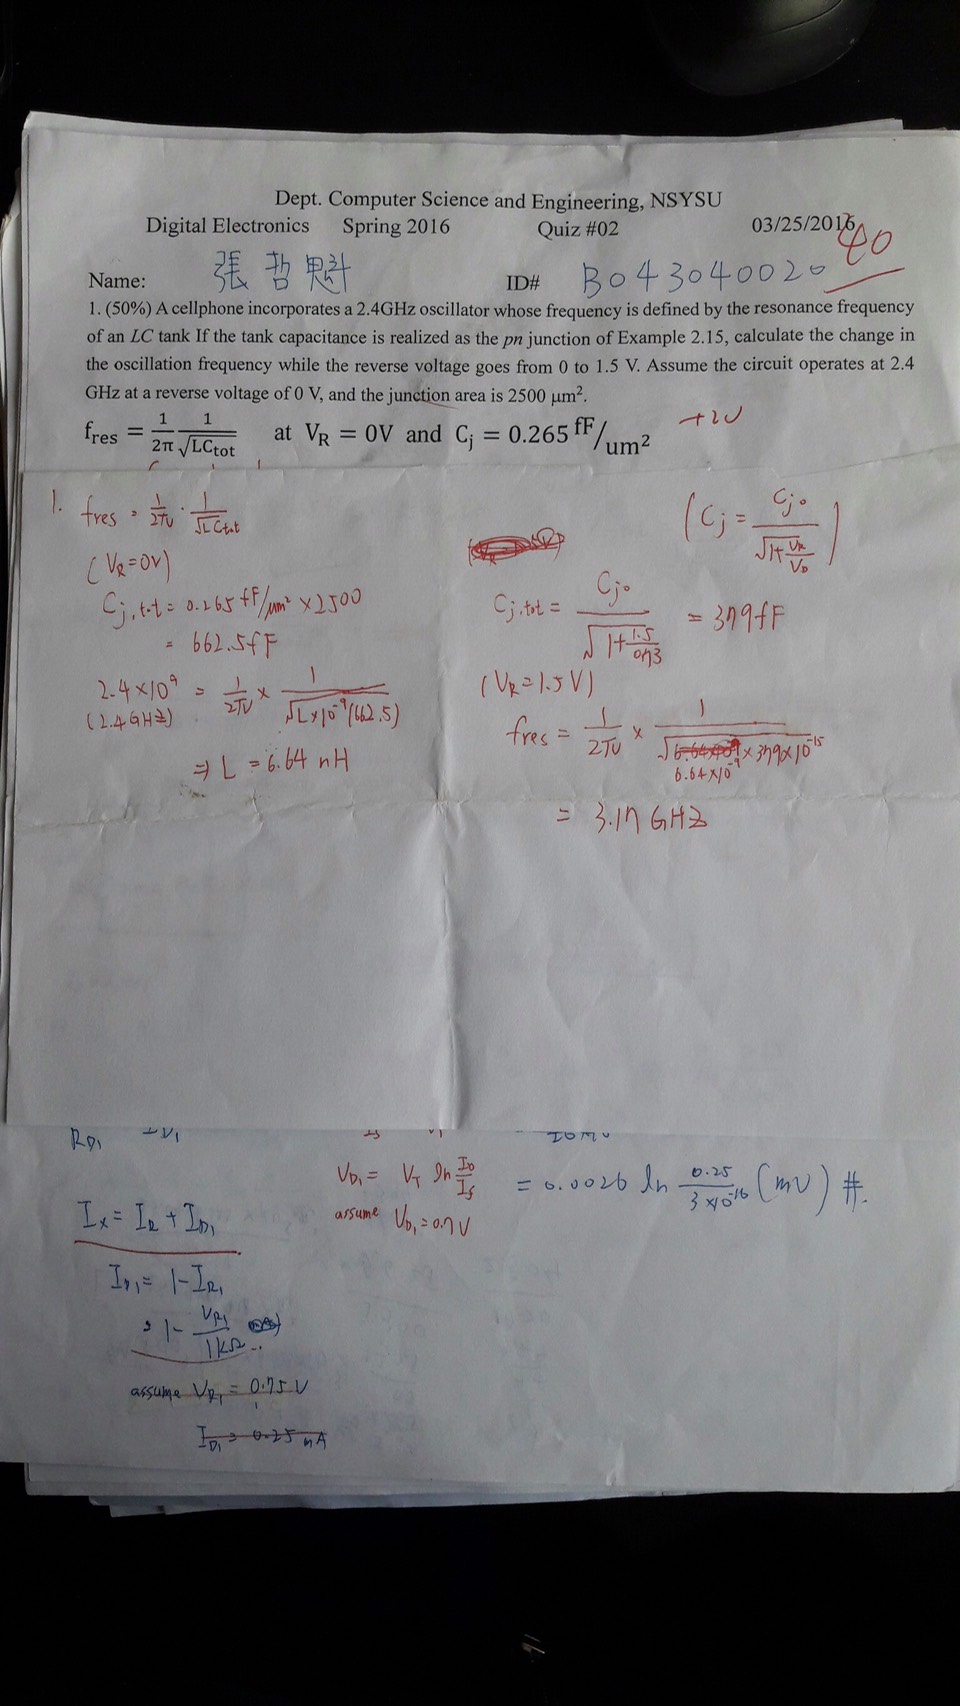 Dept. Computer Science and Engineering, NSYSU
Digital Electronics Spring 2016 Quiz #02 03/25/2016
40
Name: 張哲魁 ID# B043040020
1. (50%) A cellphone incorporates a 2.4GHz oscillator whose frequency is defined by the resonance frequency
of an LC tank If the tank capacitance is realized as the pn junction of Example 2.15, calculate the change in
the oscillation frequency while the reverse voltage goes from 0 to 1.5 V. Assume the circuit operates at 2.4
GHz at a reverse voltage of 0 V, and the junction area is 2500 μm².
f_res = 1/2π 1/√LC_tot at V_R = 0V and C_j = 0.265 fF/um² +20
1. fres = 1/2π · 1/√LCtot
(V_R=0V)
Cj,tot = 0.265 fF/μm² × 2500
= 662.5fF
2.4×10⁹ = 1/2π × 1/√L×10⁻⁹(662.5)
(2.4GHz)
⇒ L = 6.64 nH
(Cj = Cj0/√1+V_R/V_0)
Cj,tot = Cj0/√1+1.5/0.73 = 379fF
(V_R=1.5V)
fres = 1/2π × 1/√6.64×10⁻⁹×379×10⁻¹⁵
6.64×10⁻⁹
= 3.17 GHz
R_D1 I_D1
V_D1 = V_T ln I_D/I_s = 0.0026 ln 0.25/3×10⁻¹⁶ (mV) #.
assume V_D1 = 0.7V
I_X = I_R + I_D1
I_D1 = 1-I_R1
= 1- V_R1/1kΩ
assume V_R1 = 0.75V
I_D1 = 0.25 mA